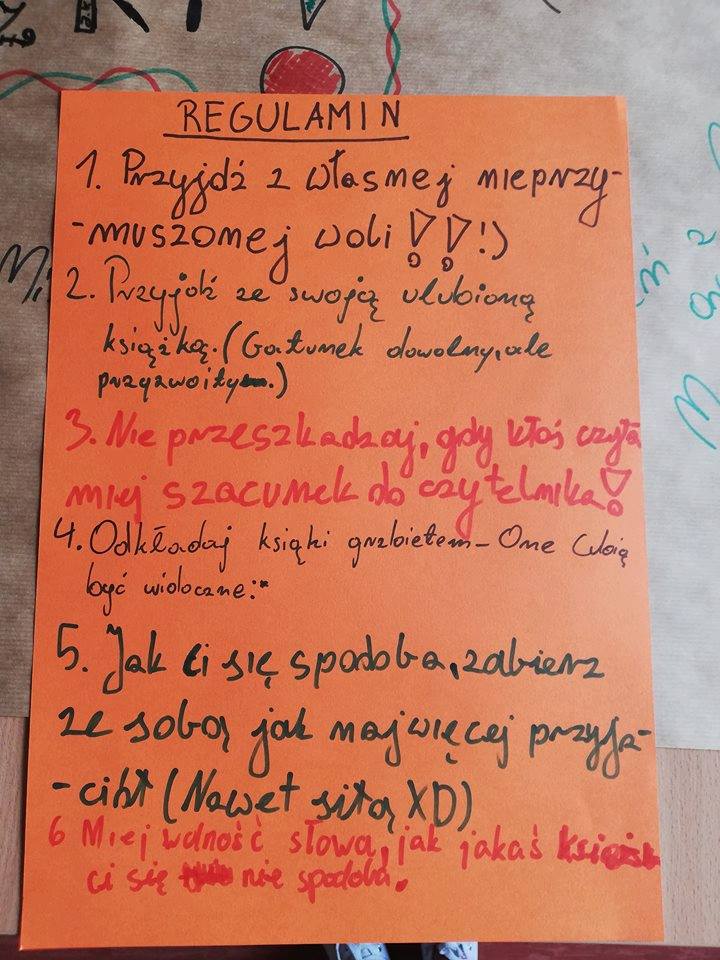 REGULAMIN
1. Przyjdź z własnej nieprzy-
-muszonej woli!!!)
2. Przyjdź ze swoją ulubioną
książką. (Gatunek dowolny, ale
przyzwoity.)
3. Nie przeszkadzaj, gdy ktoś czyta
miej szacunek do czytelnika!
4. Odkładaj książki grzbietem - One lubią
być widoczne :*
5. Jak ci się spodoba, zabierz
ze sobą jak najwięcej przyja-
-ciół (Nawet siłą XD)
6 Miej wolność słowa, jak jakaś książk
ci się nie spodoba.